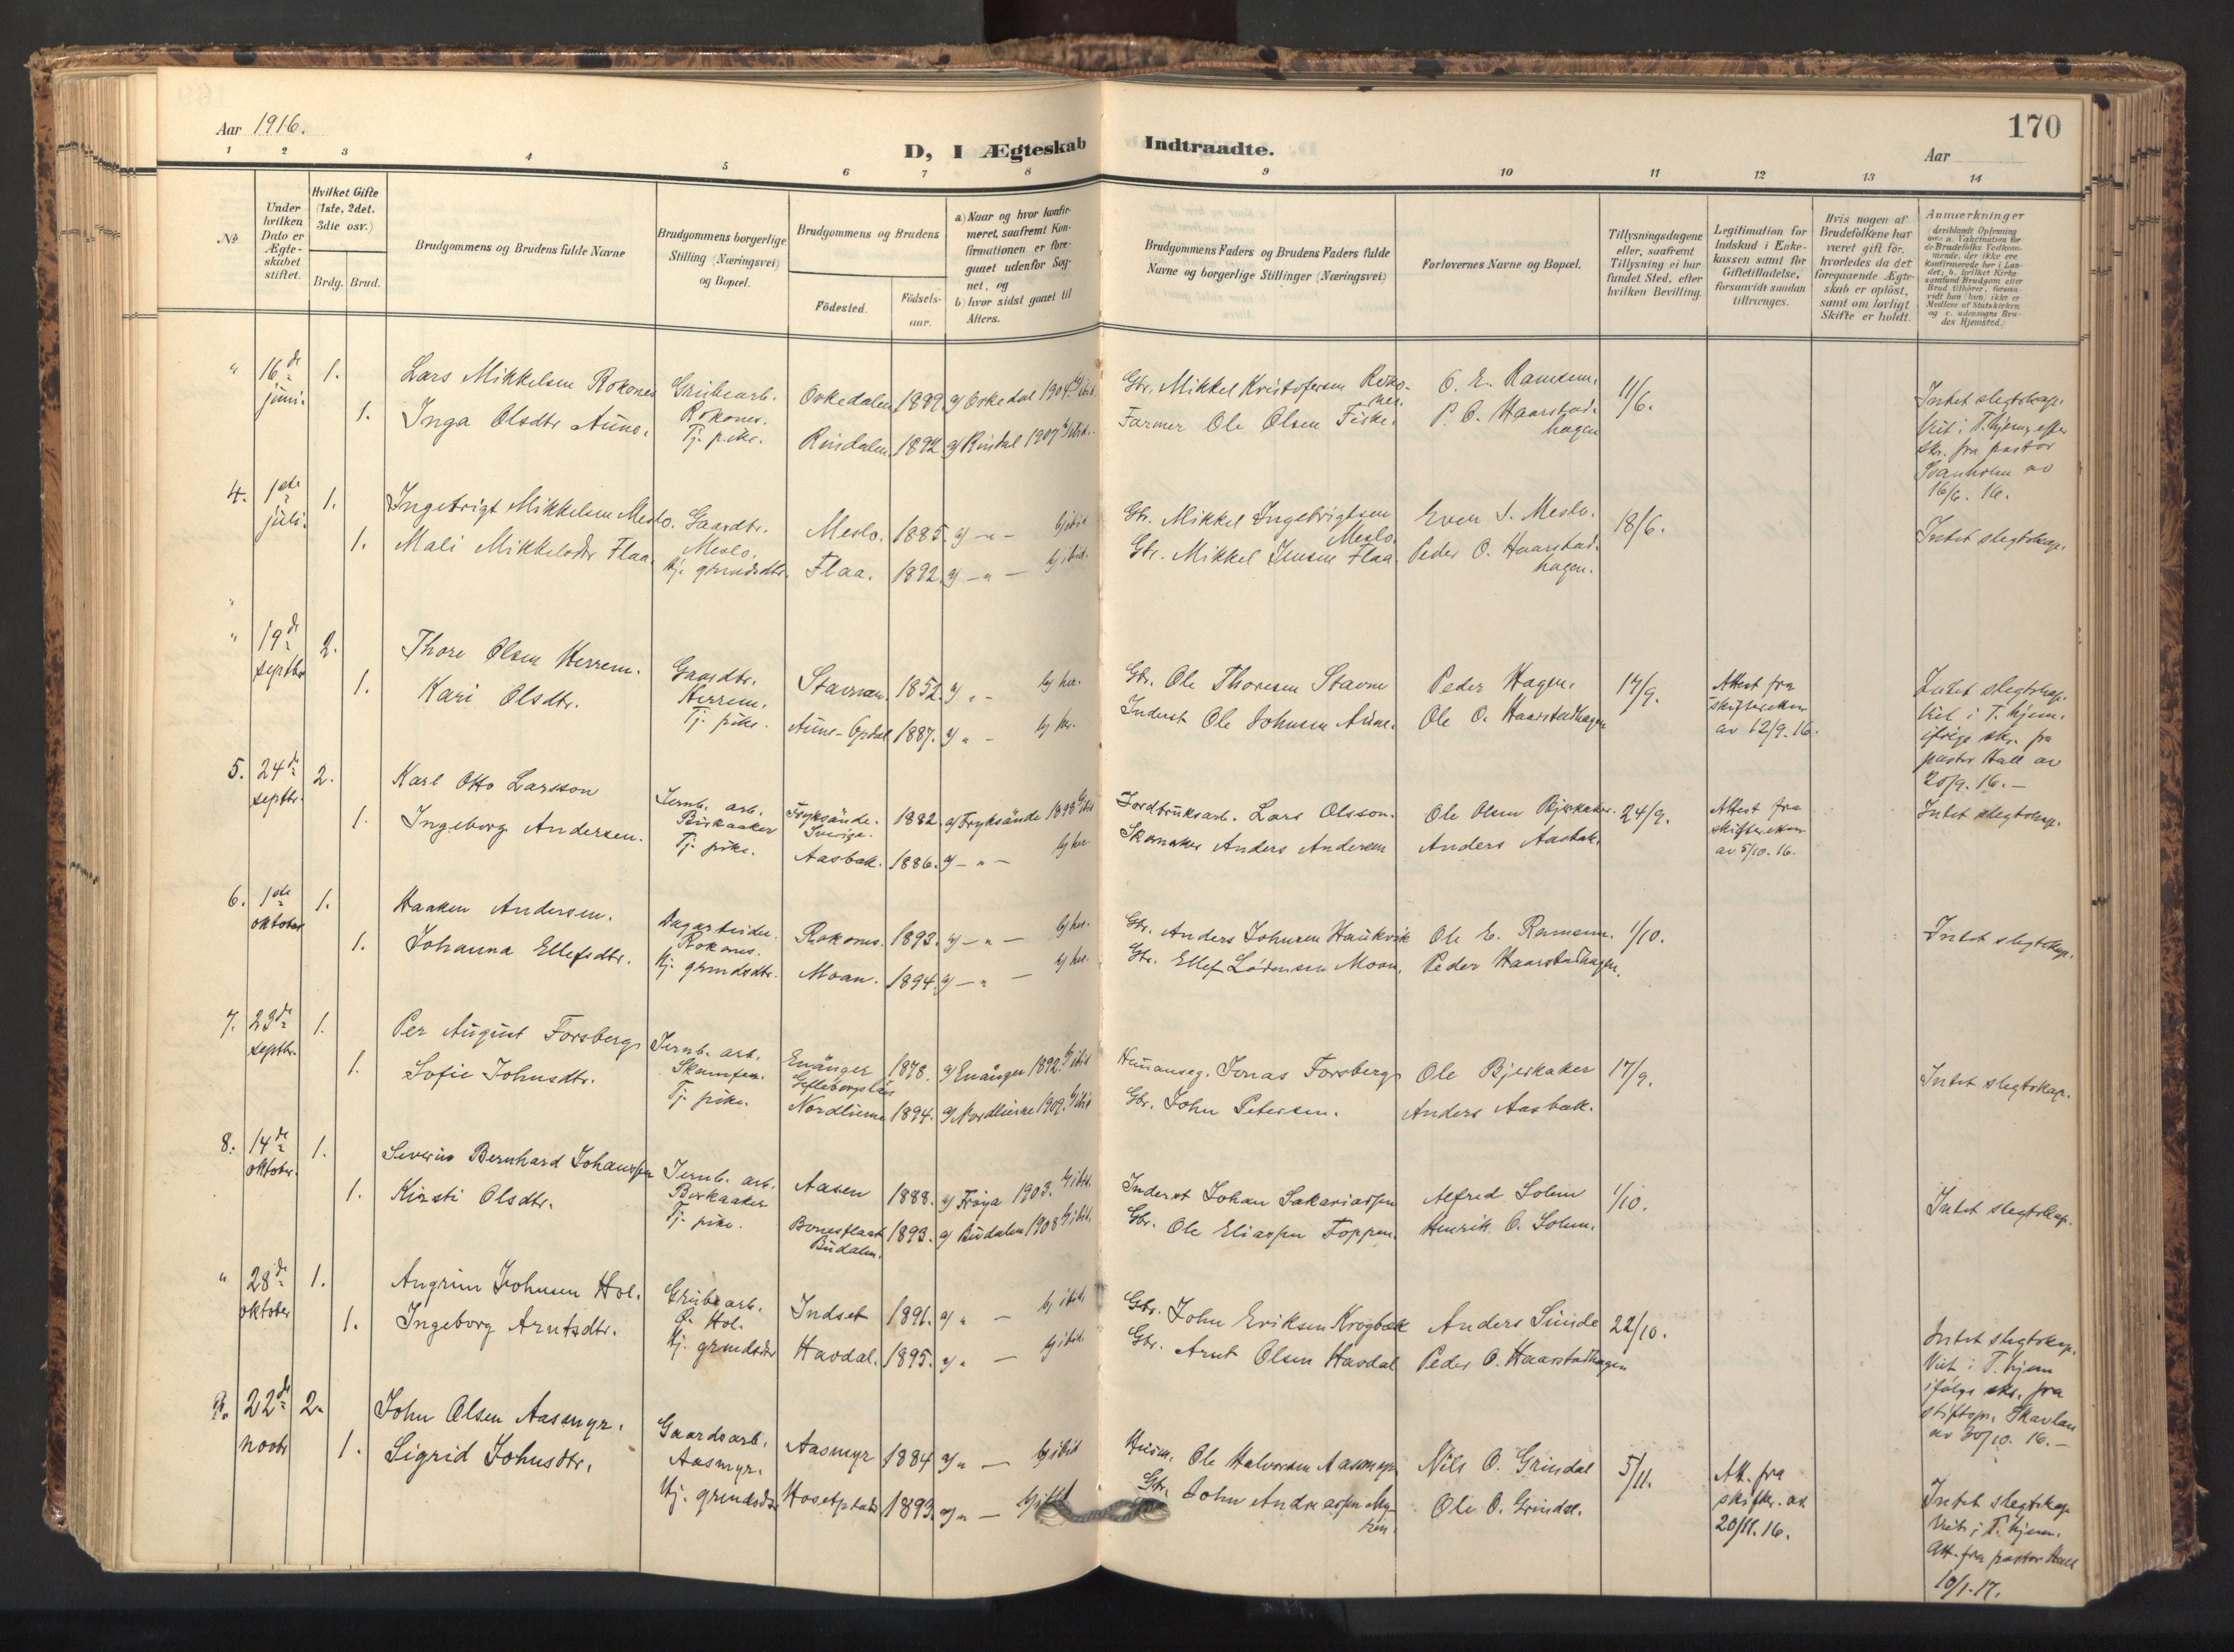 170
Aar 1916.
D, I Ægteskab Indtraadte.
Aar
1 2 3 4 5 6 7 8 9 10 11 12 13 14
No
Under hvilken Dato er Ægteskabet stiftet.
Hvilket Gifte (1ste, 2det, 3die osv.)
Brdg. Brud.
Brudgommens og Brudens fulde Navne
Brudgommens borgerlige Stilling (Næringsvei) og Bopæl.
Brudgommens og Brudens
Födested.
Födsels-aar.
a) Naar og hvor konfirmeret, saafremt Konfirmationen er foregaaet udenfor Sognet, og
b) hvor sidst gaaet til Alters.
Brudgommens Faders og Brudens Faders fulde Navne og borgerlige Stillinger (Næringsvei)
Forlovernes Navne og Bopæl.
Tillysningsdagene eller, saafremt Tillysning ei har fundet Sted, efter hvilken Bevilling.
Legitimation for Indskud i Enkekassen samt for Giftetilladelse, forsaavidt saadan tiltrænges.
Hvis nogen af Brudefolkene har været gift för, hvorledes da det foregaaende Ægteskab er oplöst, samt om lovligt Skifte er holdt.
Anmærkninger
" 16de juni. 1. Lars Mikkelsen Rokones Grubearb. Rokones. Orkedalen 1889. a) Orkedal 1904. b) ibid. Gbr. Mikkel Kristofersen Rokones. O. E. Ramsem. 11/6. Intet slegtskap.
1. Inga Olsdtr Aune. Tj. pike. Rindalen. 1892. a) Rindal 1907 b) ibid. Farmer Ole Olsen Fiske. P. O. Haarstadhagen
Viet i T.hjem efter skr. fra pastor Svanholm av 16/6. 16.
4. 1ste juli. 1. Ingebrigt Mikkelsen Meslo. Gaardbr. Meslo. Meslo. 1885. a) - " - b) ibid Gbr. Mikkel Ingebrigtsen Meslo. Even S. Meslo. 18/6. Intet slegtskap.
1. Mali Mikkelsdtr Flaa. Hj. grmdsdtr. Flaa. 1892. a) - " - b) ibid. Gbr. Mikkel Jensen Flaa. Peder O. Haarstadhagen.
" 19de septbr 2. Thore Olsen Herrem. Gaardbr. Herrem. Stavnan. 1852. a) " - b) her. Gbr. Ole Thoresen Stavne Peder Hagen. 17/9. Attest fra skifteretten av 12/9. 16. Intet slegtskap.
1. Kari Olsdtr. Tj. pike. Aune-Opdal 1887. a) " - b) her. Inderst Ole Johnsen Aune. Ole O. Haarstadhagen
Viet i T.hjem. ifølge skr. fra pastor Hall av 20/9. 16. -
5. 24de septbr. 2. Karl Otto Larsson Jernb. arb. Birkaaker Fryksände. Sverige. 1882. a) Fryksände 1898 b) ibid Jordbruksarb. Lars Olsson. Ole Olsen Bjerkaker. 24/9. Attest fra skifteretten av 5/10. 16. Intet slegtskap.
1. Ingeborg Andersen. Tj. pike. Aasbak. 1886. a) - " - b) her. Skomaker Anders Andersen Anders Aasbak.
6. 1ste oktober 1. Haaken Andersen. Dagarbeider. Rokones. Rokones. 1893. a) - " - b) her. Gbr. Anders Johnsen Haukvik Ole E. Ramsem. 1/10. Intet slegtskap.
1. Johanna Ellefsdtr. Hj. grmdsdtr. Moan. 1894. a) - " - b) her. Gbr. Ellef Lødensen Moan. Peder Haarstadhagen.
7. 23de septbr. 1. Per August Forsberg Jernb. arb. Skamfer. Enånger Gefleborgslän 1878. a) Enånger 1892. b) ibid Hemanseg. Jonas Forsberg Ole Bjerkaker 17/9. Intet slegtskap.
1. Sofie Johnsdtr. Tj. pike. Nordlierne 1894. a) Nordlierne 1909. b) ibid Gbr. John Petersen. Anders Aasbak.
8. 14de oktobr. 1. Severin Bernhard Johanssen Jernb. arb. Birkaaker Aasen 1888. a) Frøya 1903. b) ibid. Inderst Johan Sakariassen Alfred Solem 1/10. Intet slegtskap.
1. Kirsti Olsdtr. Tj. pike. Bonesflaat Budalen. 1893. a) Budalen 1908 b) ibid. Gbr. Ole Eliassen Foppen. Henrik O. Solem.
" 28de oktober 1. Angrim Johnsen Hol. Grubearb. Ø. Hol. Indset 1891. a) " - b) ibid. Gbr. John Eriksen Krogbæk Anders Sunde 22/10. Intet slegtskap.
1. Ingeborg Arntsdtr. Hj. grmdsdtr Havdal. 1895. a) " - b) ibid. Gbr. Arnt Olsen Havdal Peder O. Haarstadhagen
Viet i T.hjem ifølge skr. fra stiftspr. Skavlan av 30/10. 16. -
9. 22de novbr 2. John Olsen Aasmyr. Gaardsarb. Aasmyr. Aasmyr 1884 a) " - b) ibid Husm. Ole Halvorsen Aasmyr Nils O. Grindal 5/11. Att. fra skifter. av 20/11. 16. Intet slegtskap
1. Sigrid Johnsdtr. Hj. grmdsdtr Hosetplads 1893. a) " - b) ibid Gbr. John Andreassen Ole O. Grindal.
Viet i T.hjem. Att. fra pastor Hall 10/1-17.